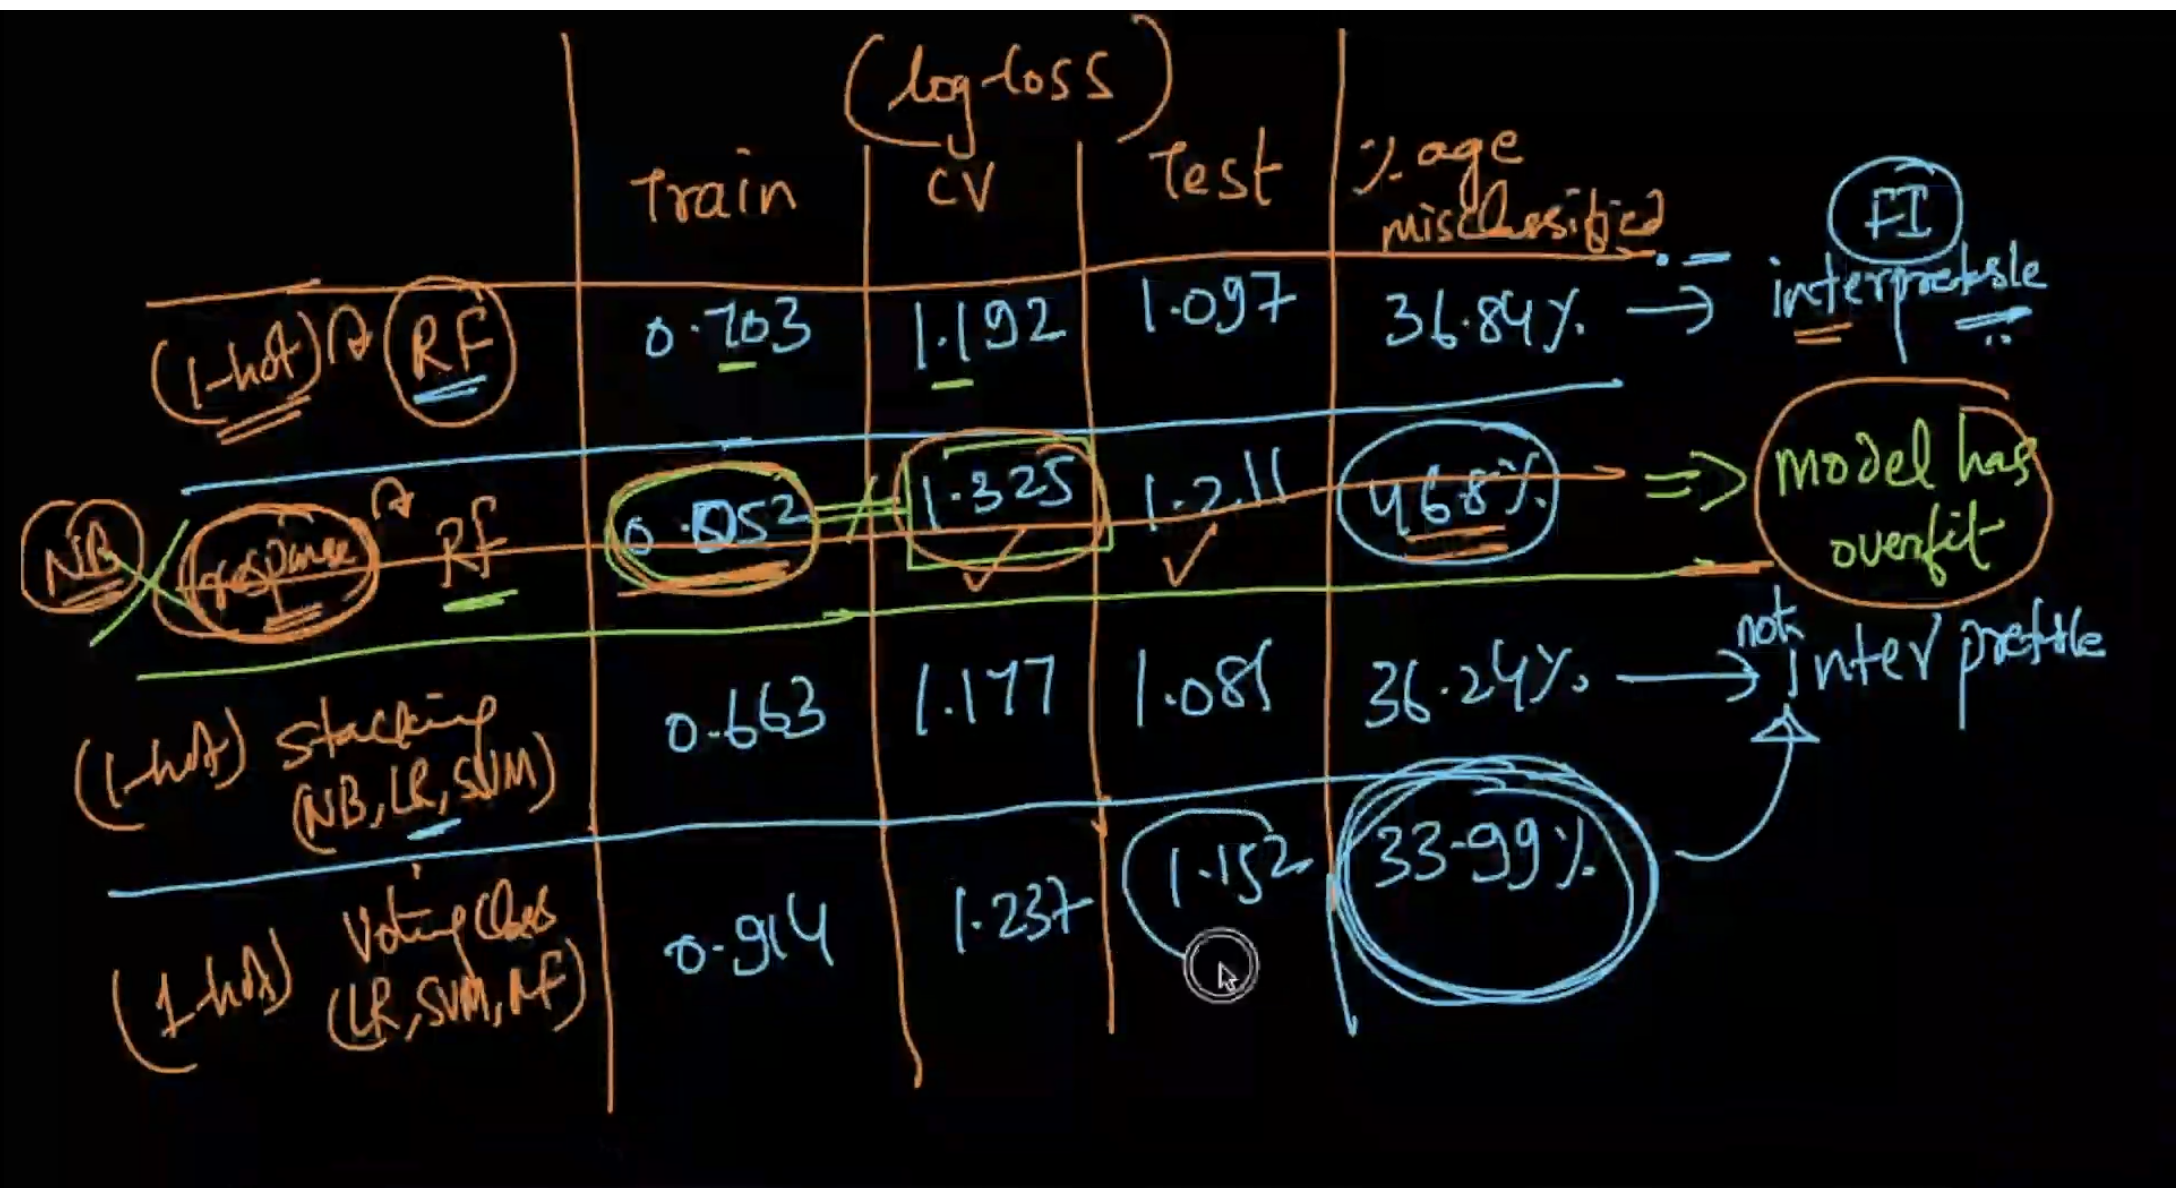 (log-loss)
Train CV Test %age misclassified
FI
(1-hot) RF 0.703 1.192 1.097 36.84% → interpretable
NB response RF 0.052 1.325 1.211 46.8% ⇒ model has overfit
(1-hot) stacking (NB, LR, SVM) 0.663 1.177 36.24% → not interpretable
(1-hot) Voting class (LR, SVM, RF) 0.914 1.237 1.152 33.99%